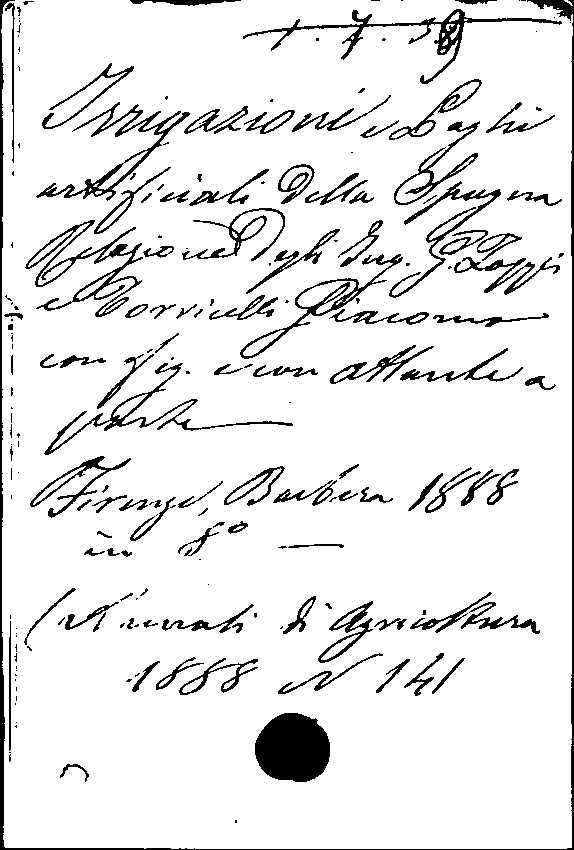 1.7.38
Irrigazioni e Laghi
artificiali della Spagna
Relazione degli Ing. G. Zoppi
e Torricelli Giacomo
con fig. e con atlante a
parte
Firenze, Barbera 1888
in 8°
(Annali di Agricoltura
1888 N 141